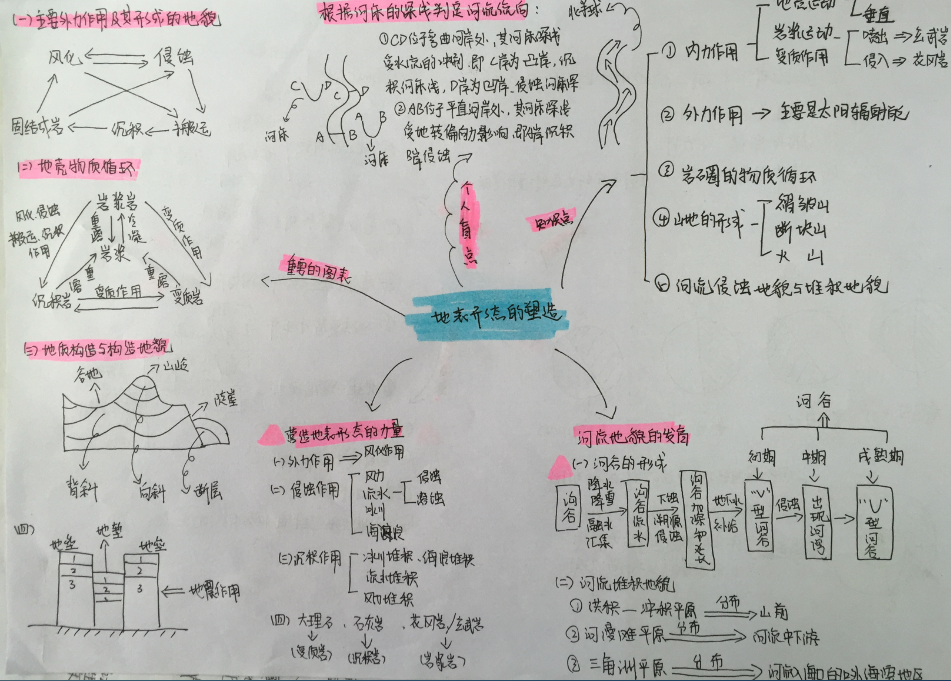 (一)主要外力作用及其形成的地貌
风化
侵蚀
固结成岩
沉积
搬运
(二)地壳物质循环
岩浆岩
风化侵蚀
搬运、沉积
作用
重熔
冷凝
变质作用
岩浆
重熔
重熔
沉积岩
变质作用
变质岩
(三)地质构造与构造地貌
谷地
山岭
陡崖
背斜
向斜
断层
(四)
地垒
地堑
地垒
1
2
3
1
2
3
1
2
地震作用
重要的图表
根据河床的深浅判定河流流向:
①CD位于弯曲河岸处,其河床深浅
受水流的冲刷,即C岸为凸岸,沉
积河床浅,D岸为凹岸、侵蚀河床深
②AB位于平直河岸处,其河床深浅
受地转偏向力影响,即A岸沉积
B岸侵蚀
C
D
C
D
A
B
A
B
河床
河床
北半球
个人盲点
知识点
地表形态的塑造
①内力作用
地壳运动
垂直
岩浆运动
喷出→玄武岩
侵入→花岗岩
变质作用
②外力作用→主要是太阳辐射能
③岩石圈的物质循环
④山地的形成
褶皱山
断块山
火山
⑤河流侵蚀地貌与堆积地貌
营造地表形态的力量
(一)外力作用
风化作用
(二)侵蚀作用
风力
流水
冰川
海浪
侵蚀
溶蚀
(三)沉积作用
冰川堆积、海浪堆积
流水堆积
风力堆积
(四)大理石、石灰岩、花岗岩/玄武岩
(变质岩)
(沉积岩)
(岩浆岩)
河流地貌的发育
(一)河谷的形成
沟谷
降水
降雪
融水
汇集
沟谷流水
下蚀
溯源
侵蚀
沟谷加深和延长
地下水
补给
河谷
初期
中期
成熟期
"V"型河谷
侵蚀
出现河湾
"U"型河谷
(二)河流堆积地貌
①洪积—冲积平原
分布
山前
②河漫滩平原
分布
河流中下游
③三角洲平原
分布
河流入海口的海滨地区